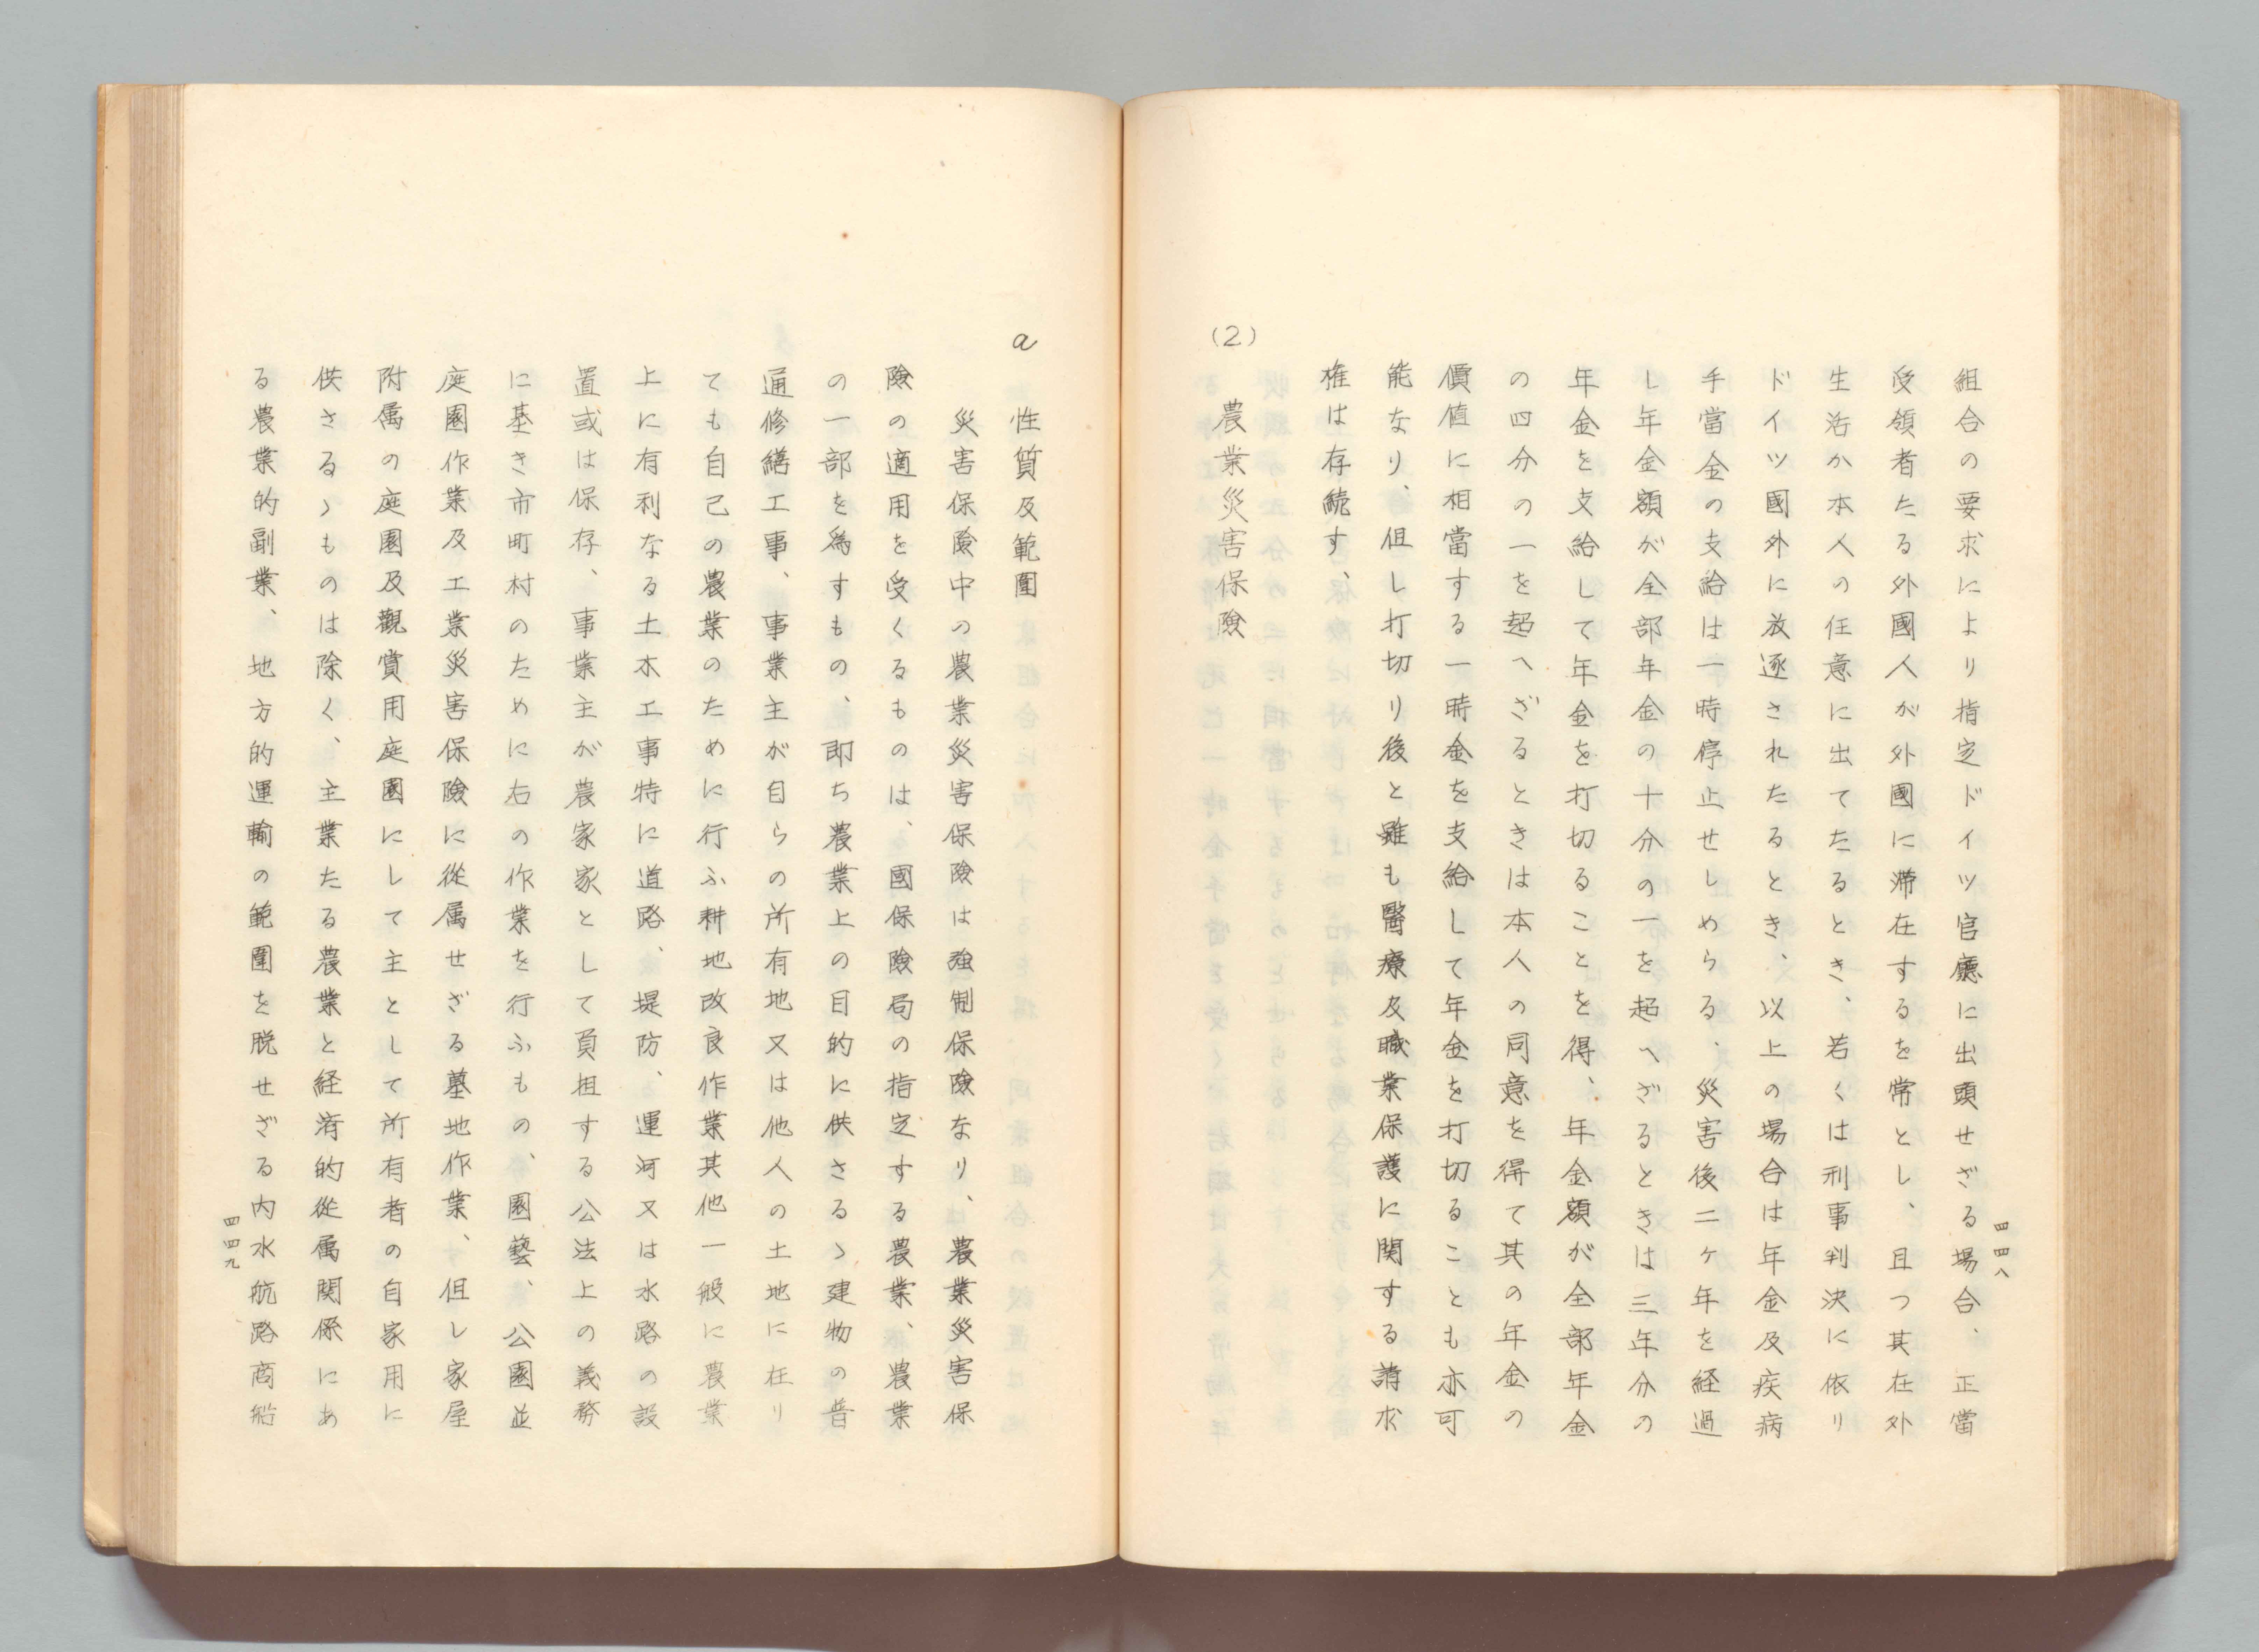 四四八
組合の要求により指定ドイツ官廳に出頭せざる場合、正當
受領者たる外國人が外國に滯在するを常とし、且つ其在外
生活か本人の任意に出てたるとき、若くは刑事判決に依り
ドイツ國外に放逐されたるとき、以上の場合は年金及疾病
手當金の支給は一時停止せしめらる、災害後二ケ年を経過
し年金額が全部年金の十分の一を超へざるときは三年分の
年金を支給して年金を打切ることを得、年金額が全部年金
の四分の一を超へざるときは本人の同意を得て其の年金の
價値に相當する一時金を支給して年金を打切ることも亦可
能なり、但し打切り後と雖も醫療及職業保護に関する請求
権は存続す、
(2) 農業災害保險
a 性質及範圍
災害保險中の農業災害保險は強制保險なり、農業災害保
險の適用を受くるものは、國保險局の指定する農業、農業
の一部を爲すもの、即ち農業上の目的に供さるゝ建物の普
通修繕工事、事業主が自らの所有地又は他人の土地に在り
ても自己の農業のために行ふ耕地改良作業其他一般に農業
上に有利なる土木工事特に道路、堤防、運河又は水路の設
置或は保存、事業主が農家家として負担する公法上の義務
に基き市町村のために右の作業を行ふもの、園藝、公園並
庭園作業及工業災害保險に從属せざる墓地作業、但し家屋
附属の庭園及觀賞用庭園にして主として所有者の自家用に
供さるゝものは除く、主業たる農業と経済的從属関係にあ
る農業的副業、地方的運輸の範圍を脱せざる内水航路商船
四四九